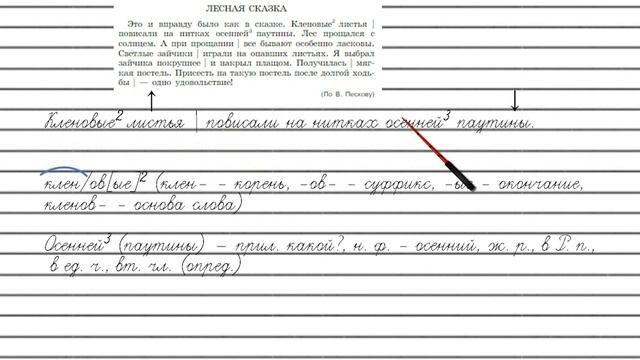 ЛЕСНАЯ СКАЗКА
Это и вправду было как в сказке. Кленовые² листья |
повисали на нитках осенней³ паутины. Лес прощался с
солнцем. А при прощании | все бывают особенно ласковы.
Светлые зайчики | играли на опавших листьях. Я выбрал
зайчика покрупнее | и накрыл плащом. Получилась | мяг-
кая постель. Присесть на такую постель после долгой ходь-
бы | — одно удовольствие!
(По В. Пескову)
Кленовые² листья | повисали на нитках осенней³ паутины.
клен/ов[ые]² (клен- - корень, -ов- - суффикс, -ые - окончание,
кленов- - основа слова)
Осенней³ (паутины) - прил. какой?, н. ф. - осенний, ж. р., в Р. п.,
в ед. ч., вт. чл. (опред.)